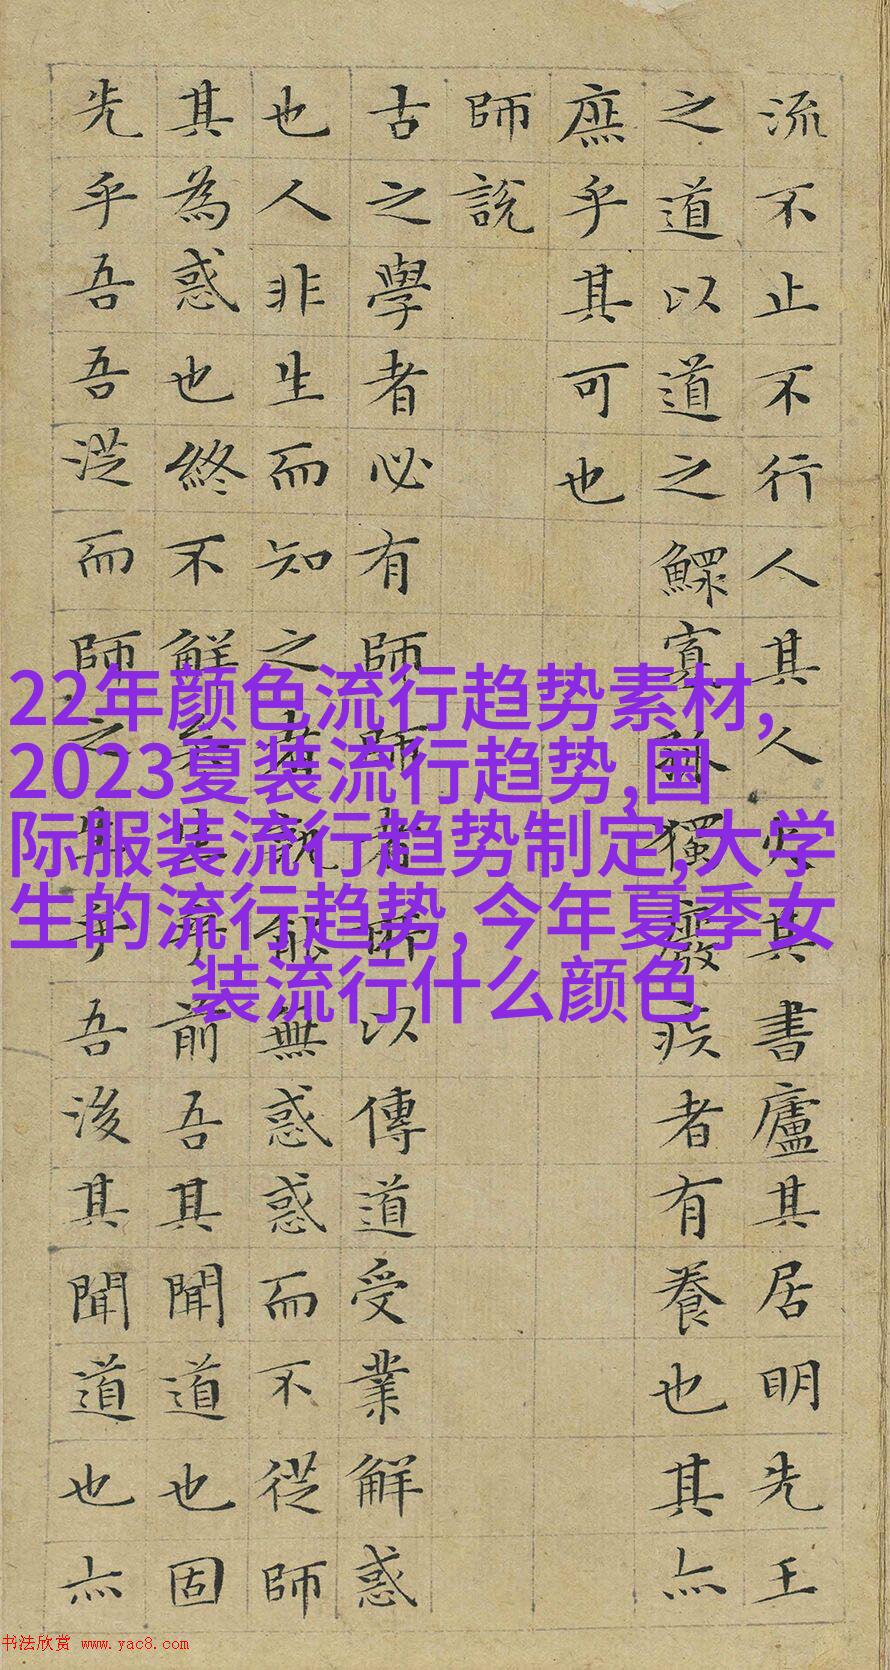 流不止不行人其人火其書廬其居明先王
之道以道之鰥寡孤獨廢疾者有養也其亦
庶乎其可也
師說
古之學者必有師師者所以傳道受業解惑
也人非生而知之者孰能無惑惑而不從師
其為惑也終不解矣生乎前吾其聞道也固
先乎吾吾從而師之生乎吾後其聞道也亦
22年颜色流行趋势素材,
2023夏装流行趋势,国
际服装流行趋势制定,大学
生的流行趋势,今年夏季女
装流行什么颜色
书法欣赏 www.yac8.com